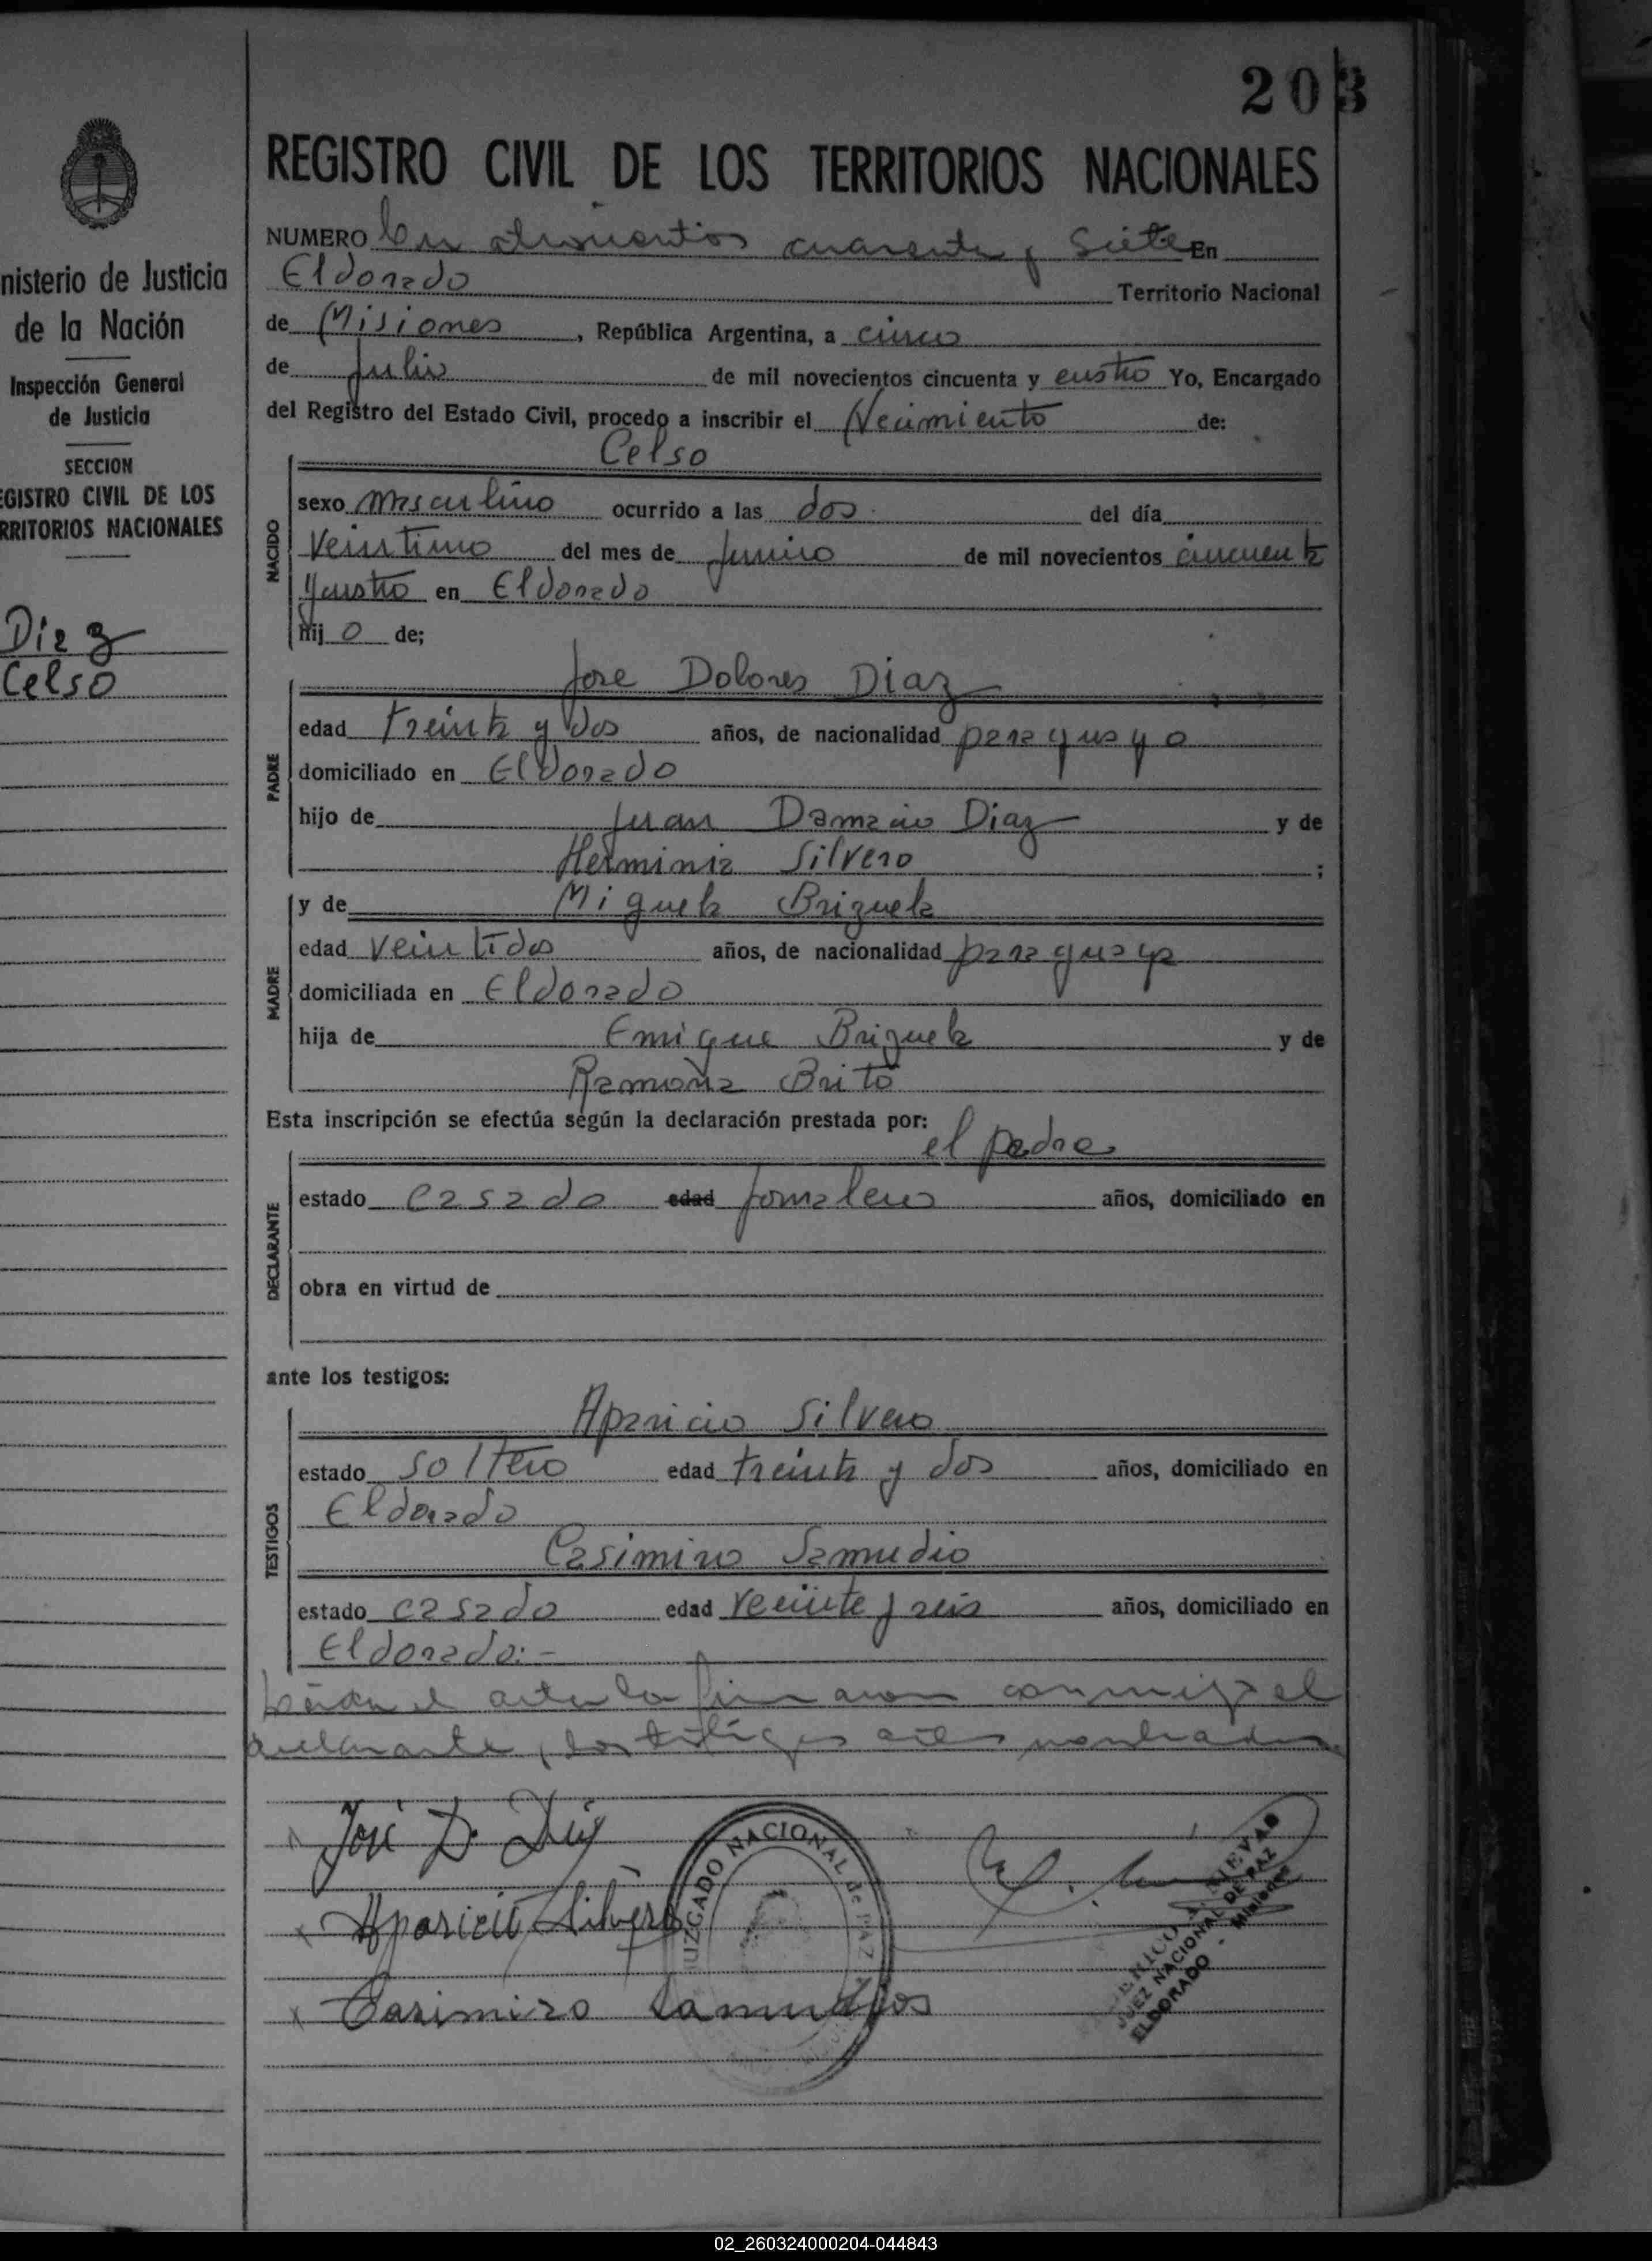 203
REGISTRO CIVIL DE LOS TERRITORIOS NACIONALES
nisterio de Justicia
de la Nación
Inspección General
de Justicia
SECCION
EGISTRO CIVIL DE LOS
RRITORIOS NACIONALES
Diaz
Celso
NUMERO cuarenta y siete En
Eldorado Territorio Nacional
de Misiones, República Argentina, a cinco
de Julio de mil novecientos cincuenta y cuatro Yo, Encargado
del Registro del Estado Civil, procedo a inscribir el Nacimiento de:
Celso
NACIDO
sexo masculino ocurrido a las dos del día
Veintiuno del mes de Junio de mil novecientos cincuenta
y cuatro en Eldorado
hij o de;
Jose Dolores Diaz
PADRE
edad treinta y dos años, de nacionalidad paraguayo
domiciliado en Eldorado
hijo de Juan Damacio Diaz y de
Herminia Silvero ;
y de Miguela Brizuela
MADRE
edad veintidos años, de nacionalidad paraguaya
domiciliada en Eldorado
hija de Enrique Brizuela y de
Ramona Brito
Esta inscripción se efectúa según la declaración prestada por:
el padre
DECLARANTE
estado casado edad jornalero años, domiciliado en
obra en virtud de
ante los testigos:
Aparicio Silvero
TESTIGOS
estado soltero edad treinta y dos años, domiciliado en
Eldorado
Casimiro Samudio
estado casado edad veinte y seis años, domiciliado en
Eldorado:-
Leída el acta la firmaron conmigo el
declarante y los testigos antes nombrados
José D. Diaz
Aparicio Silvero
Casimiro Samudios
JUZGADO NACIONAL de PAZ
NIEVAS
JUEZ NACIONAL DE PAZ
ELDORADO - Misiones
02_260324000204-044843